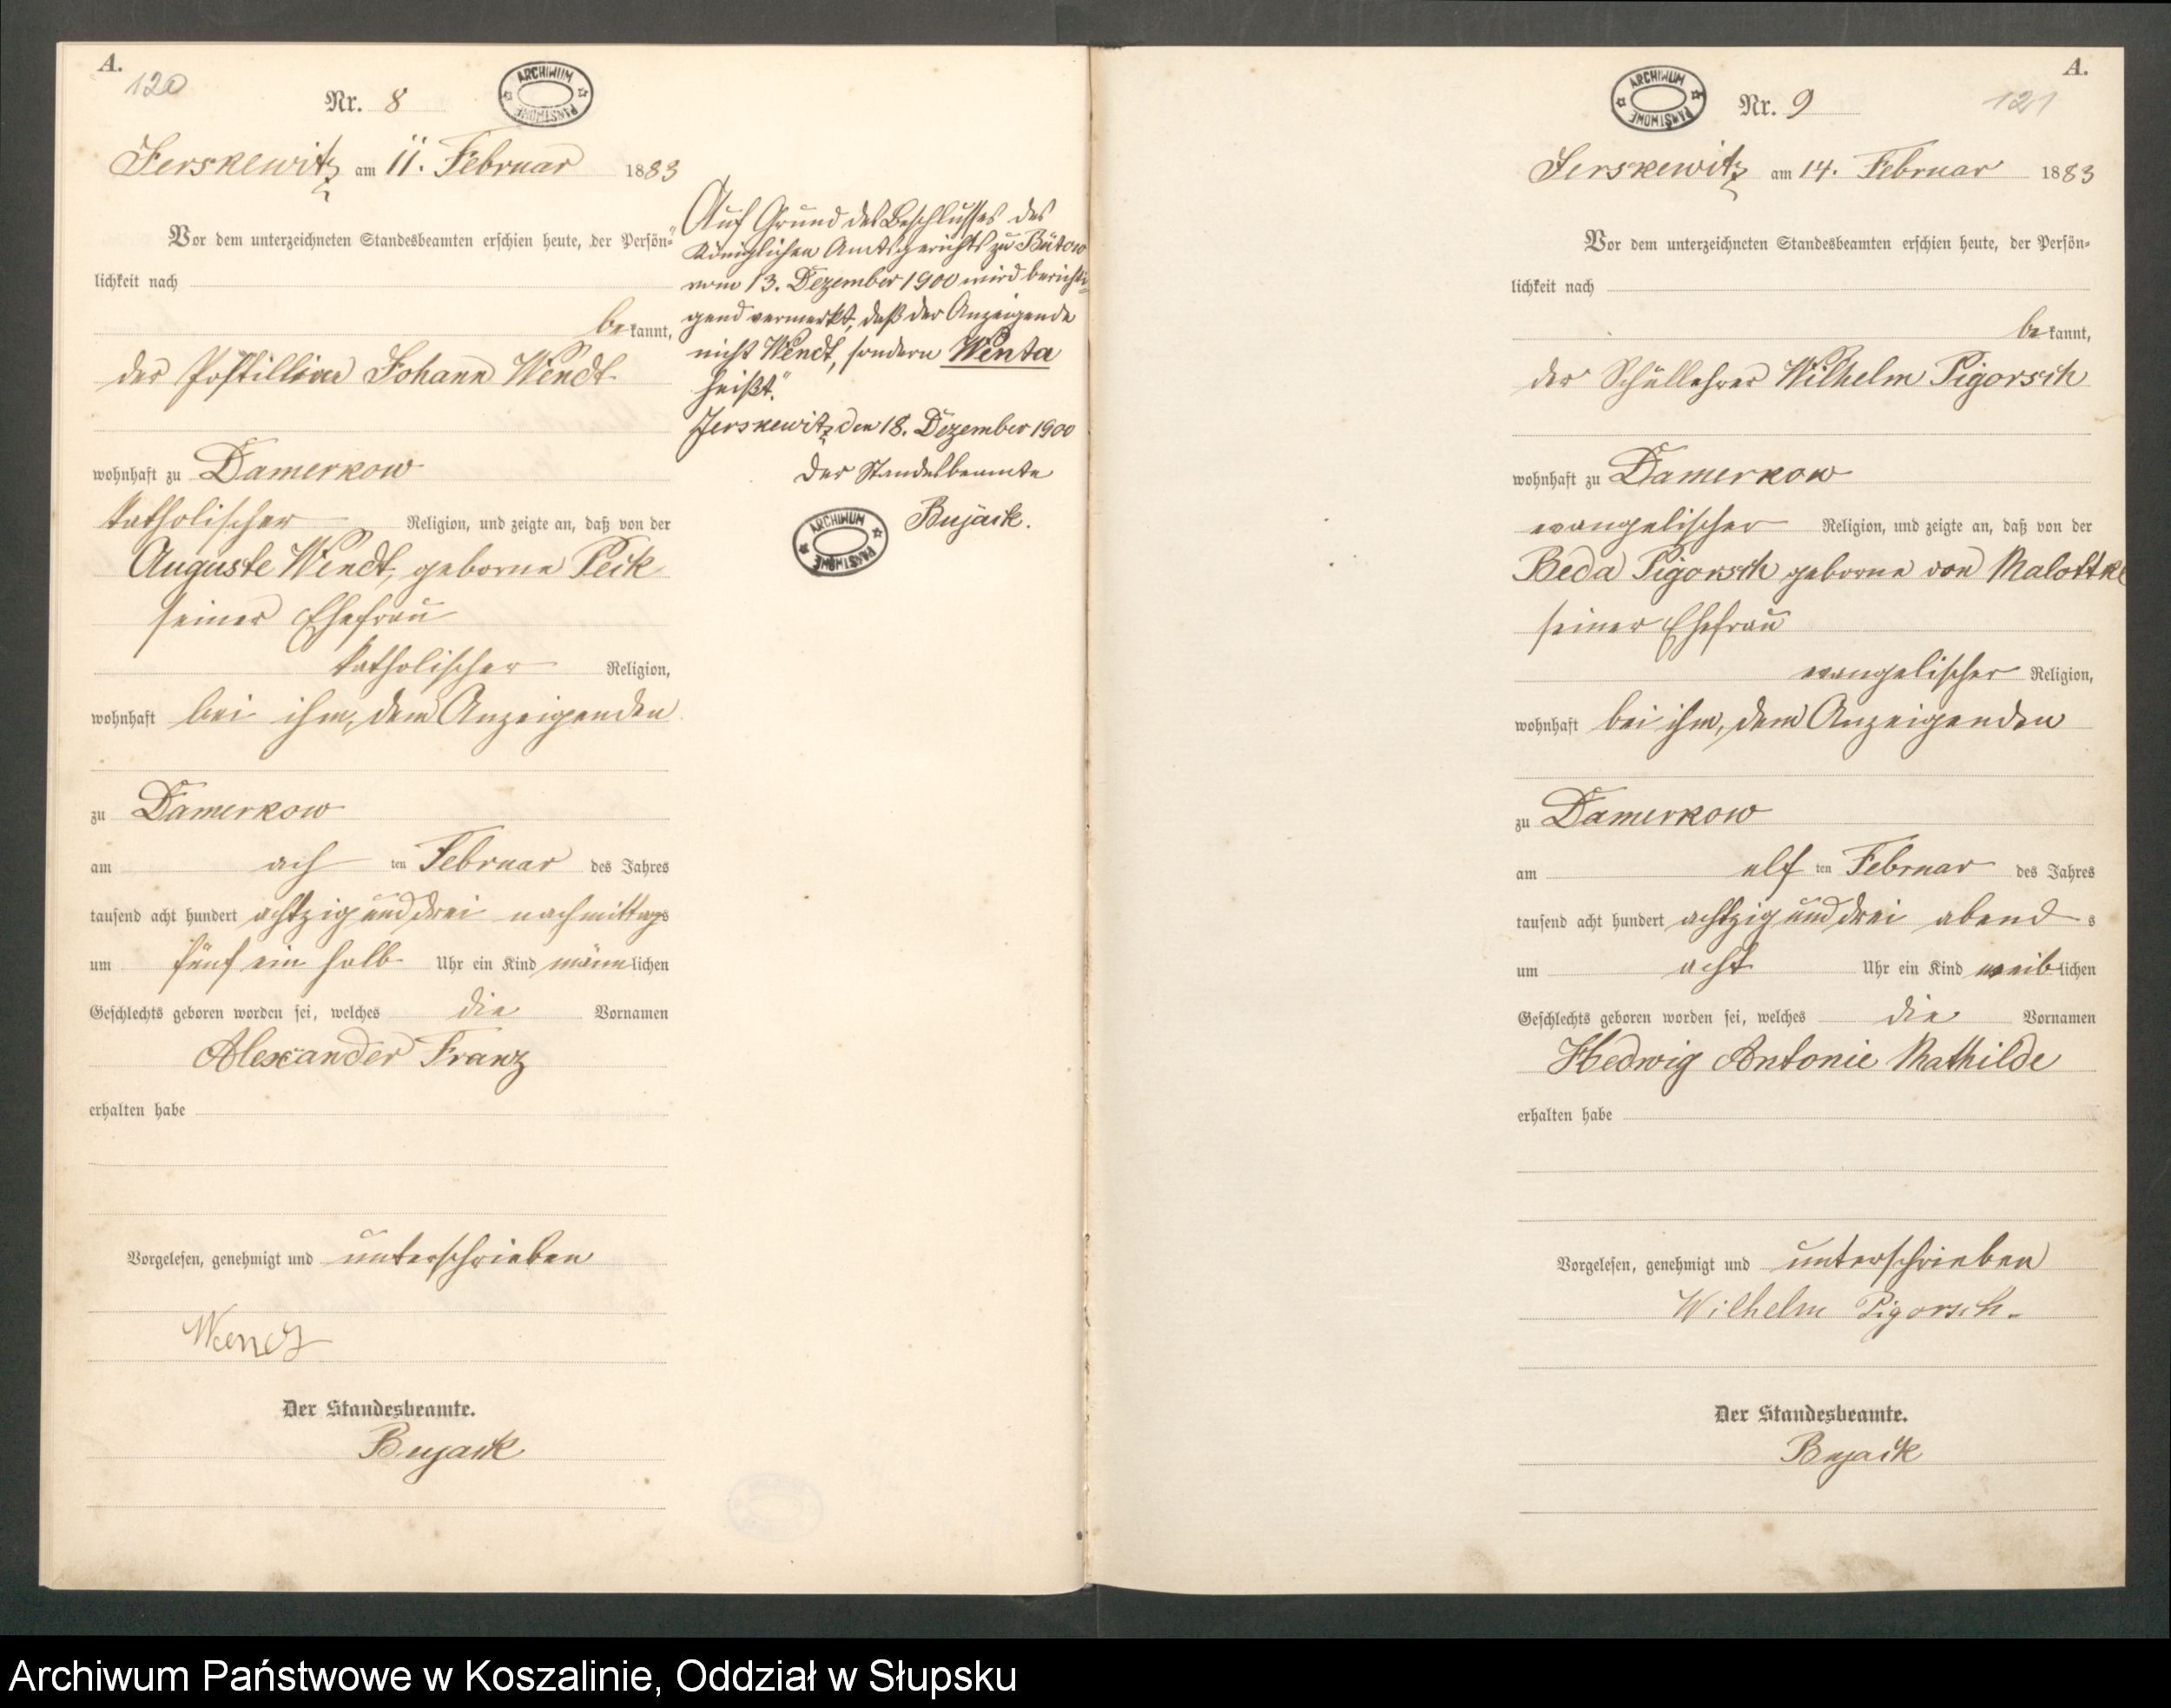 A.
120
Nr. 8
ARCHIWUM PAŃSTWOWE
Jerskewitz am 11. Februar 1883
Vor dem unterzeichneten Standesbeamten erschien heute, der Persön=
lichkeit nach
bekannt,
der Postillion Johann Wendt
wohnhaft zu Damerkow
katholischer Religion, und zeigte an, daß von der
Auguste Wendt, geborne Peik
seiner Ehefrau
katholischer Religion,
wohnhaft bei ihm, dem Anzeigenden
zu Damerkow
am ach ten Februar des Jahres
tausend acht hundert achtzig und drei nachmittags
um fünf ein halb Uhr ein Kind männlichen
Geschlechts geboren worden sei, welches die Vornamen
Alexander Franz
erhalten habe
Vorgelesen, genehmigt und unterschrieben
Wendt
Der Standesbeamte.
Bujack
"Auf Grund des Beschlusses des
Königlichen Amtsgerichts zu Bütow
vom 13. Dezember 1900 wird berichti=
gend vermerkt, daß der Anzeigende
nicht Wendt, sondern Wenta
heißt."
Jerskewitz den 18. Dezember 1900
Der Standesbeamte
Bujack.
ARCHIWUM PAŃSTWOWE
A.
121
ARCHIWUM PAŃSTWOWE
Nr. 9
Jerskewitz am 14. Februar 1883
Vor dem unterzeichneten Standesbeamten erschien heute, der Persön=
lichkeit nach
bekannt,
der Schullehrer Wilhelm Pigorsch
wohnhaft zu Damerkow
evangelischer Religion, und zeigte an, daß von der
Beda Pigorsch geborne von Malottke
seiner Ehefrau
evangelischer Religion,
wohnhaft bei ihm, dem Anzeigenden
zu Damerkow
am elf ten Februar des Jahres
tausend acht hundert achtzig und drei abend s
um acht Uhr ein Kind weiblichen
Geschlechts geboren worden sei, welches die Vornamen
Hedwig Antonie Mathilde
erhalten habe
Vorgelesen, genehmigt und unterschrieben
Wilhelm Pigorsch.
Der Standesbeamte.
Bujack
Archiwum Państwowe w Koszalinie, Oddział w Słupsku